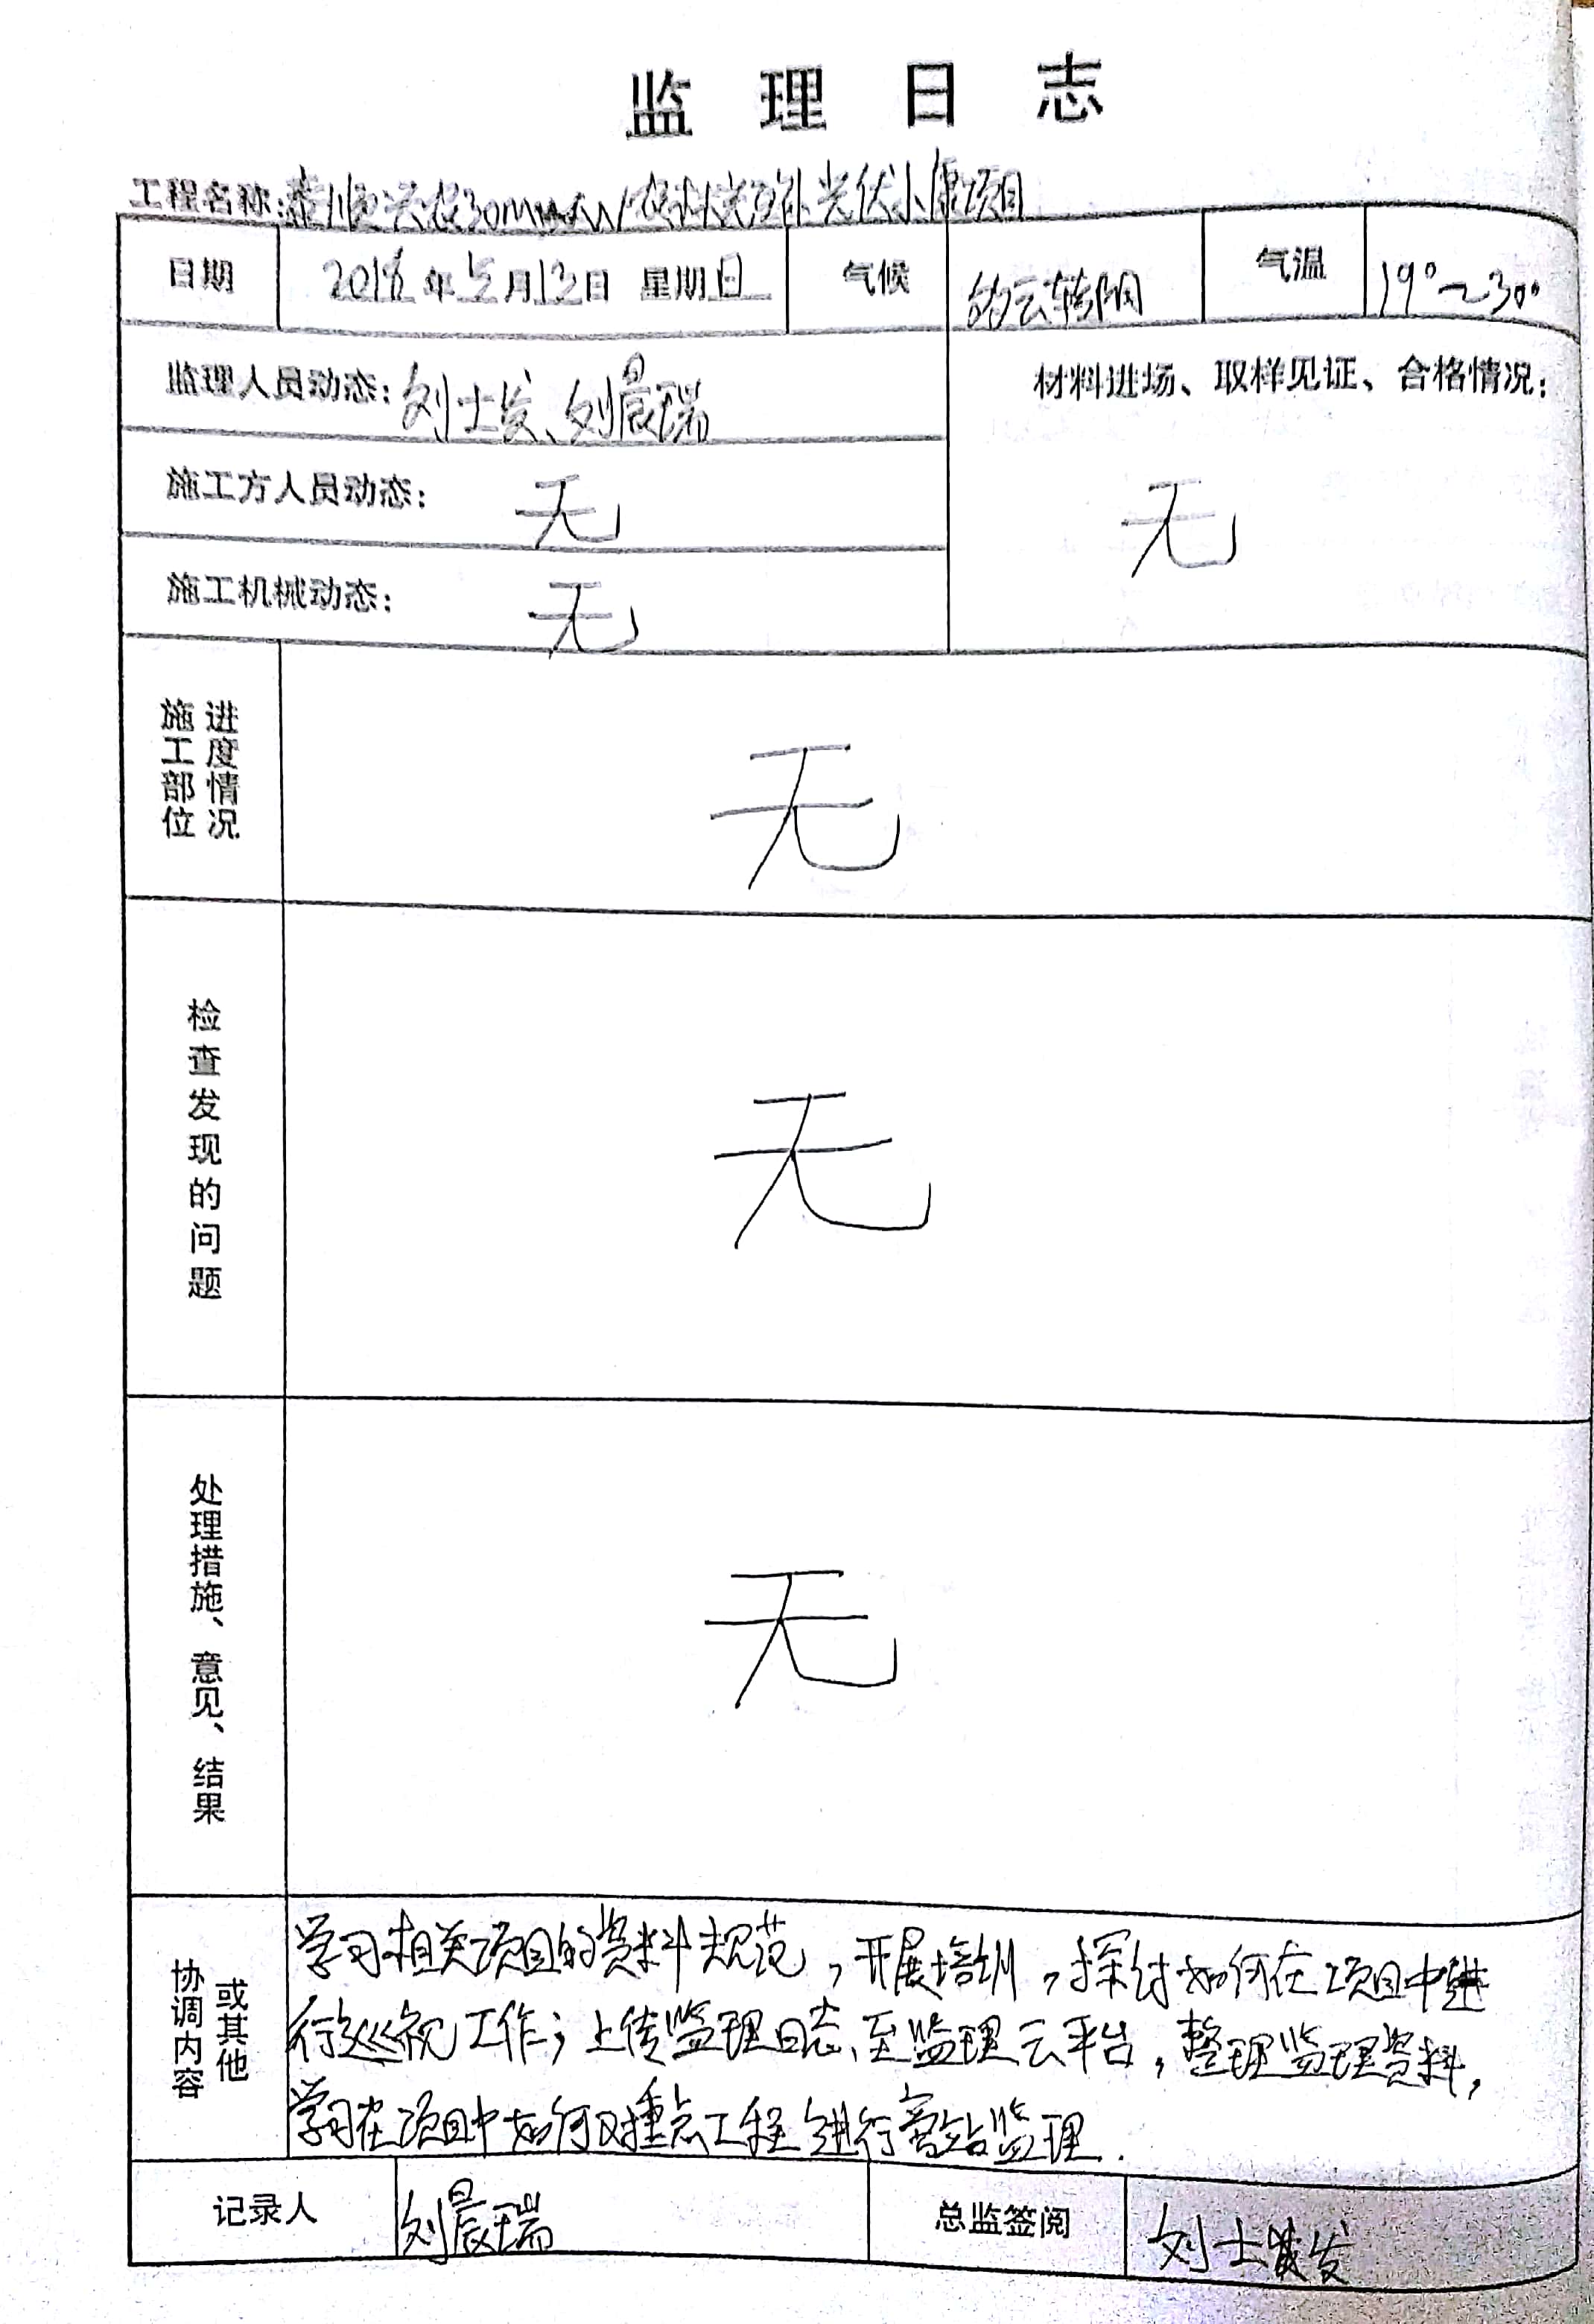 监理日志
工程名称:泰顺兴农30MW农林光互补光伏小康项目
日期 2018年5月13日 星期日 气候 多云转阴 气温 19°~30°
监理人员动态:刘士发、刘晨瑞 材料进场、取样见证、合格情况:
施工方人员动态: 无 无
施工机械动态: 无
施工部位 进度情况 无
检查发现的问题 无
处理措施、意见、结果 无
协调内容 或其他 学习相关项目的资料规范,开展培训,探讨如何在项目中进
行巡视工作;上传监理日志至监理云平台,整理监理资料,
学习在项目中如何对重点工程进行旁站监理.
记录人 刘晨瑞 总监签阅 刘士发